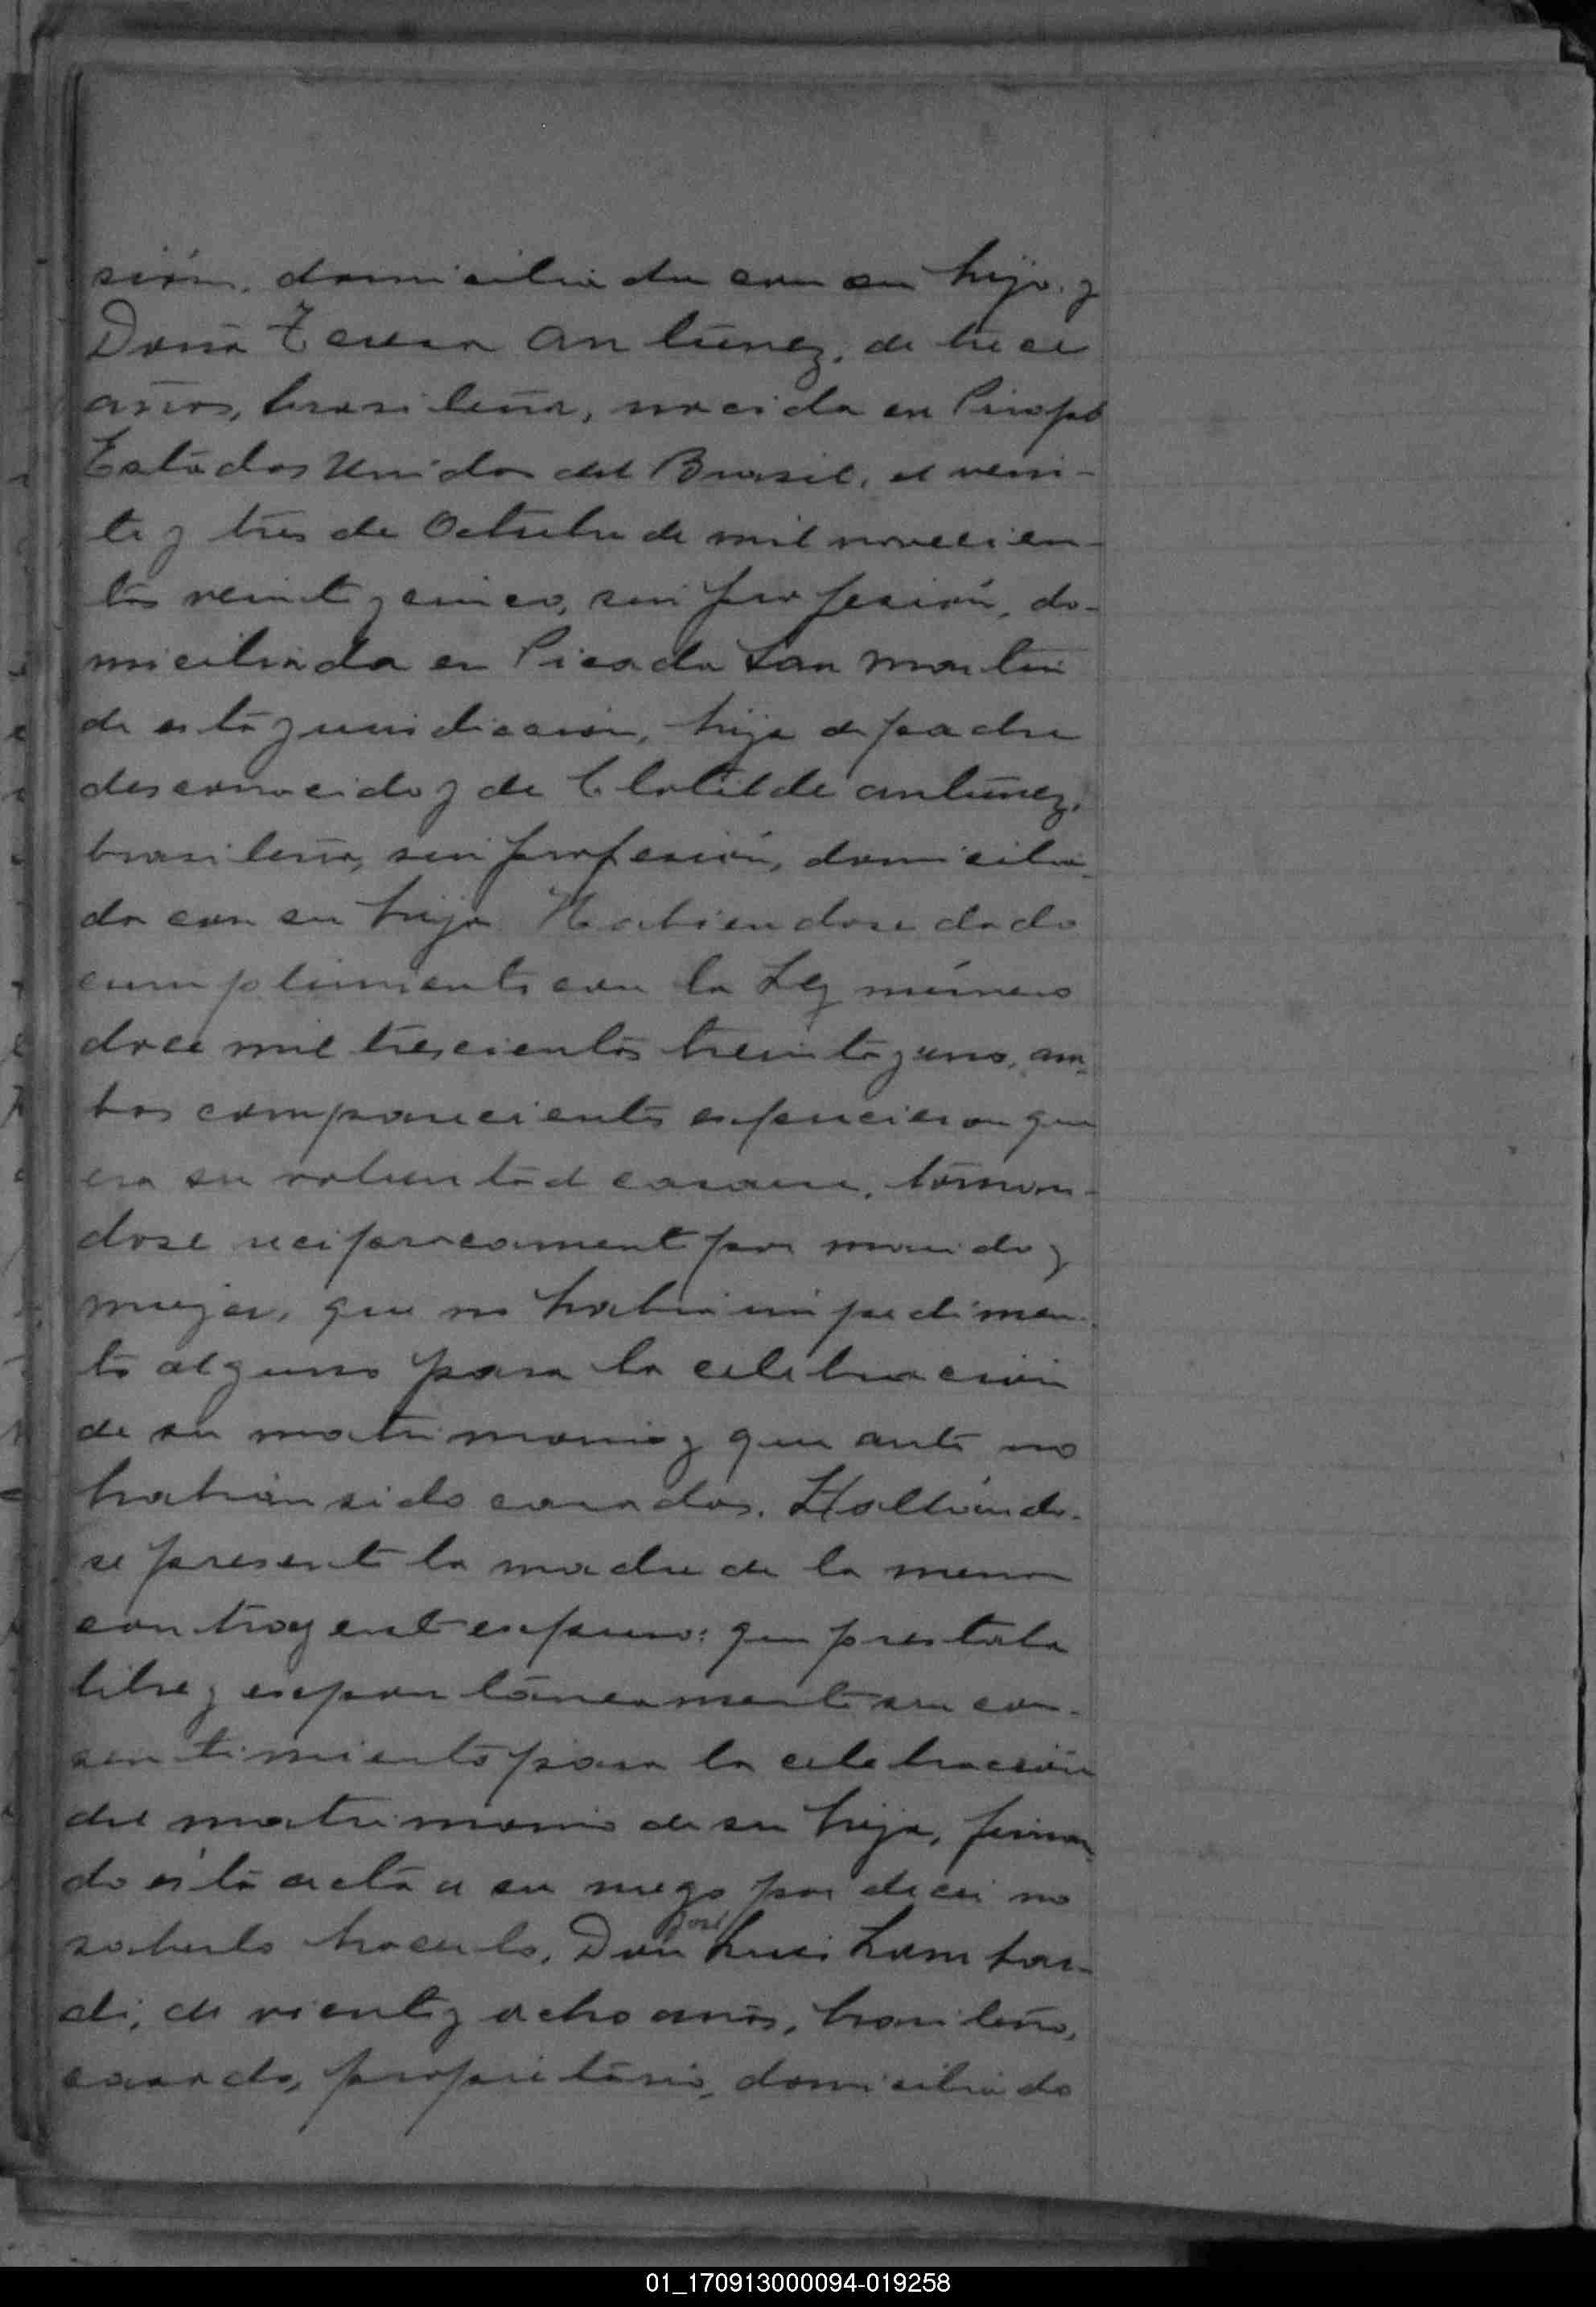 sión, domiciliada con su hijo. y
Doña Teresa Antúnez, de trece
años, brasileña, nacida en
Estados Unidos del Brasil, el vein-
te y tres de Octubre de mil novecien-
tos veinte y cinco, sin profesión, do-
miciliada en Picada San Martín
de esta jurisdicción, hija de padre
desconocido y de Clotilde Antúnez,
brasileña, sin profesión, domicilia-
da con su hija. Habiendose dado
cumplimiento con la Ley número
doce mil trescientos treinta y uno, am-
bos comparecientes expusieron que
era su voluntad casarse, tóman-
dose reciprocamente por marido y
mujer, que no habia impedimen-
to alguno para la celebración
de su matrimonio y que antes no
habian sido casados. Hallándo-
se presente la madre de la menor
contrayente expuso: que prestaba
libre y espontáneamente su con-
sentimiento para la celebración
del matrimonio de su hija, firman-
do ésta acta a su ruego por decir no
saberlo hacerlo, Don José Luis Lombar-
di, de viente y ocho años, brasileño,
casado, propietario, domiciliado
01_170913000094-019258